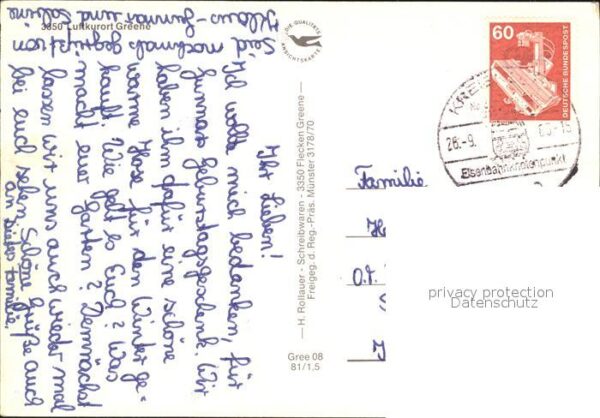 3350 Luftkurort Greene
DIE QUALITÄTS
ANSICHTSKARTE
Ihr Lieben!
Ich wollte mich bedanken, für
Gunnars Geburtstagsgeschenk. Wir
haben ihm dafür eine schöne
warme Hose für den Winter ge-
kauft. Wie geht es Euch? Was
macht euer Garten? Demnächst
lassen wir uns auch wieder mal
bei euch sehen. Schöne Grüße auch
an Dieters Familie.
Seid nochmals gegrüßt von
Klaus-Gunnar und Sabine
— H. Rollauer - Schreibwaren - 3350 Flecken Greene —
Freigeg. d. Reg.-Präs. Münster 3178/70
Gree 08
81/1,5
60
DEUTSCHE BUNDESPOST
KREI
26.-9.
Eisenbahnknotenpunkt
Familie
H
O.T.
privacy protection
Datenschutz